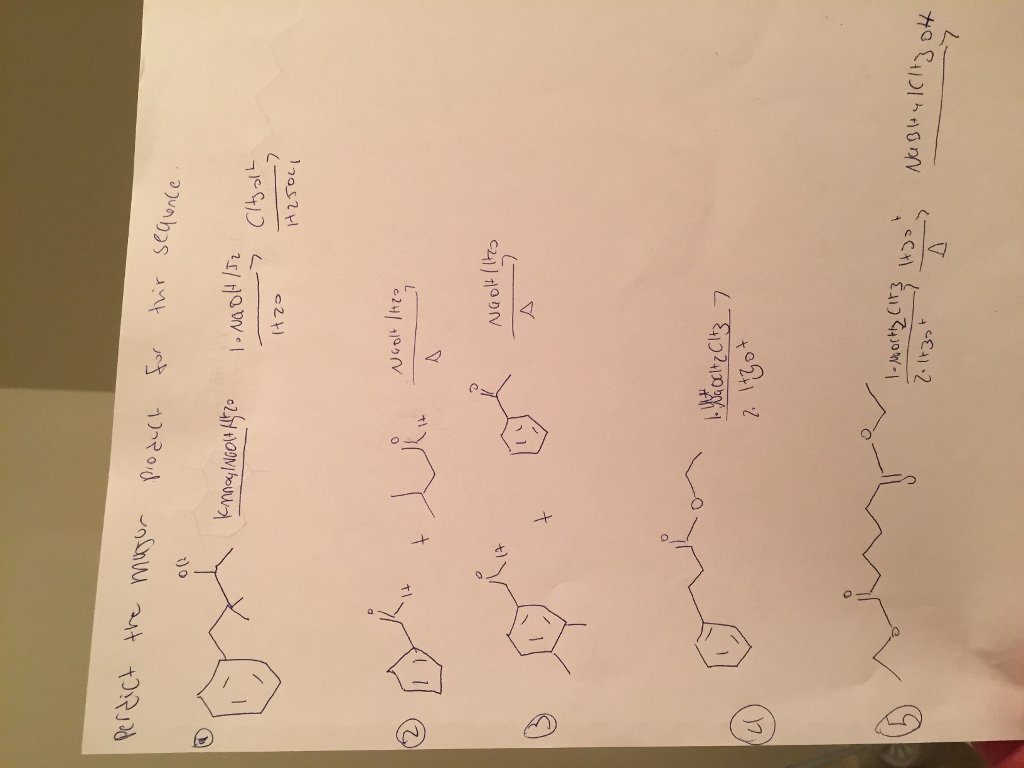 Perdict the major product for thir sequence.
1 OH KmnO4/NaOH/H2O 1. NaOH/I2 H2O CH3OH H2SO4
2 O H + O H NaOH/H2O Δ
3 O H + O NaOH/H2O Δ
4 O O 1. NaOCH2CH3 2. H3O+
5 O O O O 1. NaOCH2CH3 2. H3O+ H3O+ Δ NaBH4/CH3OH